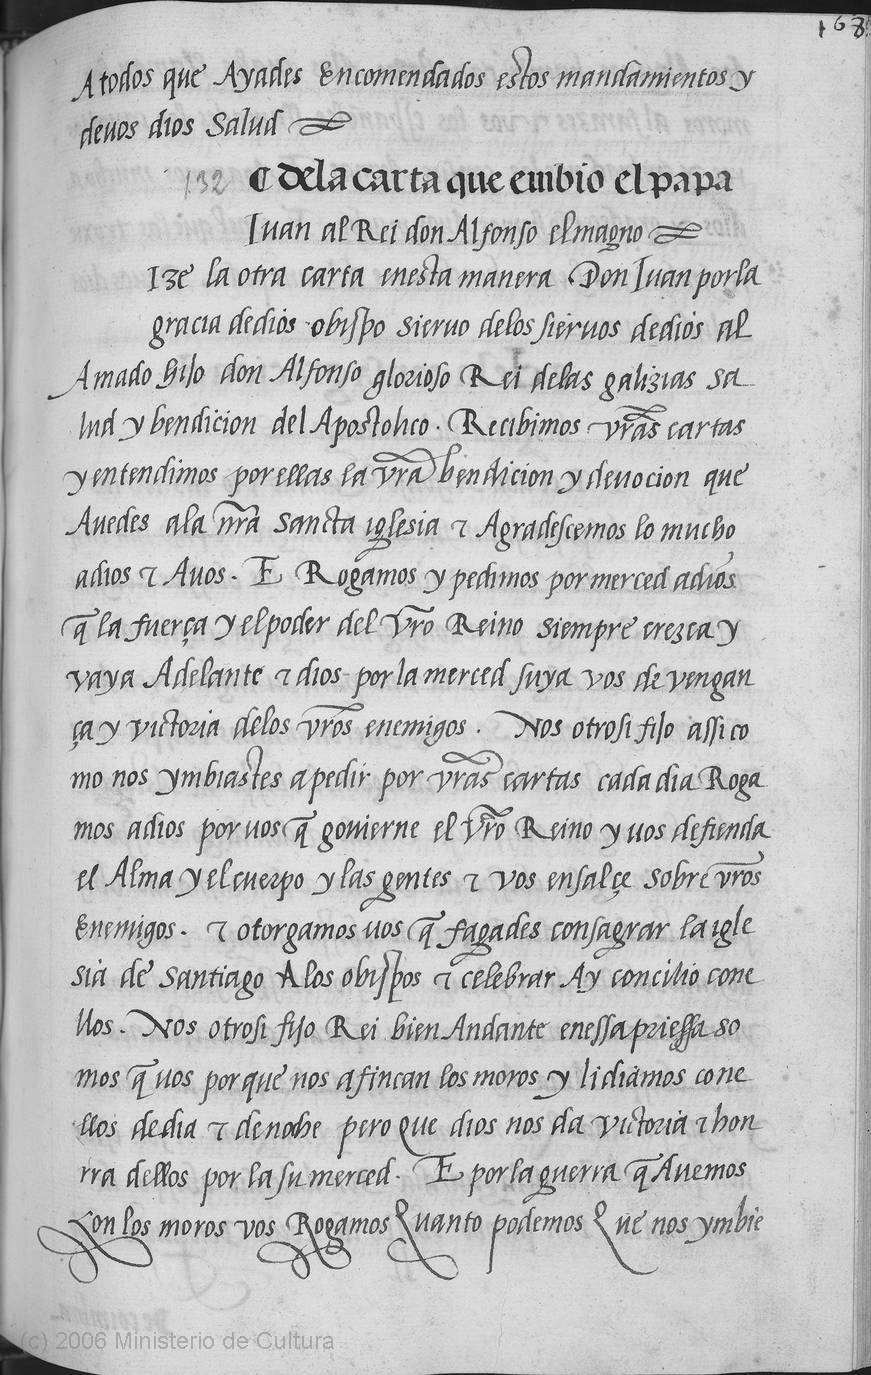 168
A todos que Ayades Encomendados estos mandamientos y
de uos dios Salud
132 C dela carta que embio el papa
Iuan al Rei don Alfonso el magno
Ize la otra carta enesta manera Don Iuan por la
gracia de dios obispo sieruo delos sieruos de dios al
Amado hijo don Alfonso glorioso Rei delas galizias sa
lud y bendicion del Apostolico. Recibimos vr̃as cartas
y entendimos por ellas la vr̃a bendicion y deuocion que
Auedes ala nr̃a sancta iglesia τ Agradescemos lo mucho
a dios τ Auos. E Rogamos y pedimos por merced a dios
q̃ la fuerça y el poder del Vr̃o Reino siempre crezca y
vaya Adelante τ dios por la merced suya vos de vengan
ça y victoria delos vr̃os enemigos. Nos otrosi fijo assi co
mo nos ymbiastes a pedir por vr̃as cartas cada dia Roga
mos a dios por uos q̃ gouierne el Vr̃o Reino y uos defienda
el Alma y el cuerpo y las gentes τ vos ensalçe sobre vr̃os
Enemigos. τ otorgamos uos q̃ fagades consagrar la igle
sia de santiago A los obispos τ celebrar Ay concilio cone
llos. Nos otrosi fijo Rei bien Andante enessa priessa so
mos q̃ uos porque nos afincan los moros y lidiamos cone
llos de dia τ de noche pero que dios nos da victoria τ hon
rra dellos por la su merced. E por la guerra q̃ Auemos
Con los moros vos Rogamos Quanto podemos Que nos ymbie
(c) 2006 Ministerio de Cultura